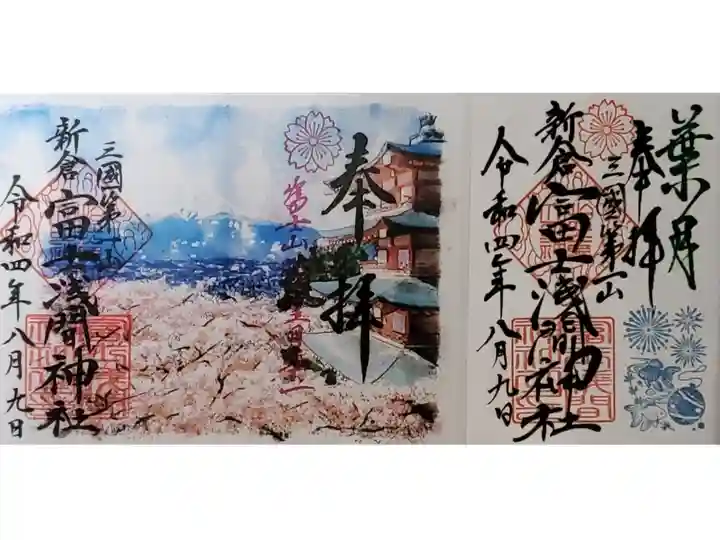 奉拝
三國第一山
新倉富士浅間神社
令和四年八月九日
葉月
奉拝
三國第一山
新倉富士浅間神社
令和四年八月九日